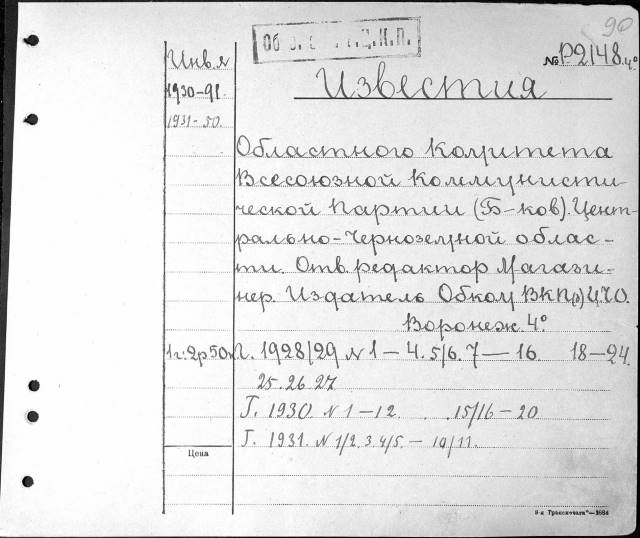 90
№ P2148.4°
Инв. №
1930-91.
1931-50.
Известия
Областного Комитета
Всесоюзной Коммунисти-
ческой Партии (Б-ков). Цент-
рально-Черноземной облас-
ти. Отв. редактор Магази-
нер. Издатель Обком ВКП(б) ЦЧО.
Воронеж. 4°
1г: 2р 50к
Г. 1928/29 № 1-4. 5/6. 7-16. 18-24.
25. 26. 27
Г. 1930. № 1-12. 15/16-20
Г. 1931. № 1/2. 3. 4/5. - 10/11.
Цена